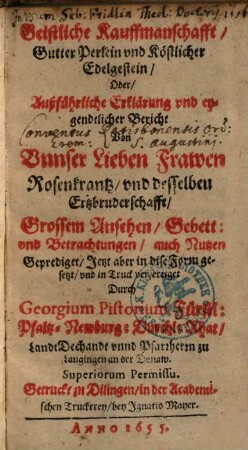 Geistliche Kauffmanschafft /
Gutter Perlein vnd Köstlicher
Edelgestein /
Oder /
Außfährliche Erklärung vnd ey-
gendtlicher Bericht
Von
Conventus Ratisbonensis Ord:
Erem: S. Augustini
Vnnser Lieben Frawen
Rosenkrantz / vnd desselben
Ertzbruderschafft /
Grossem Ansehen / Gebett:
vnd Betrachtungen / auch Nutzen
Geprediget / Jetzt aber in dise Form ge-
setzt / vnd in Truck verfertiget
Durch
Georgium Pistorium Fürstl:
Pfaltz-Newburg: Durchl: Rhat /
LandtDechandt vnnd Pfarrherrn zu
Laugingen an der Donaw.
Superiorum Permissu.
Getruckt zu Dilingen / in der Academi-
schen Truckerey / bey Ignatio Mayer.
ANNO 1655.